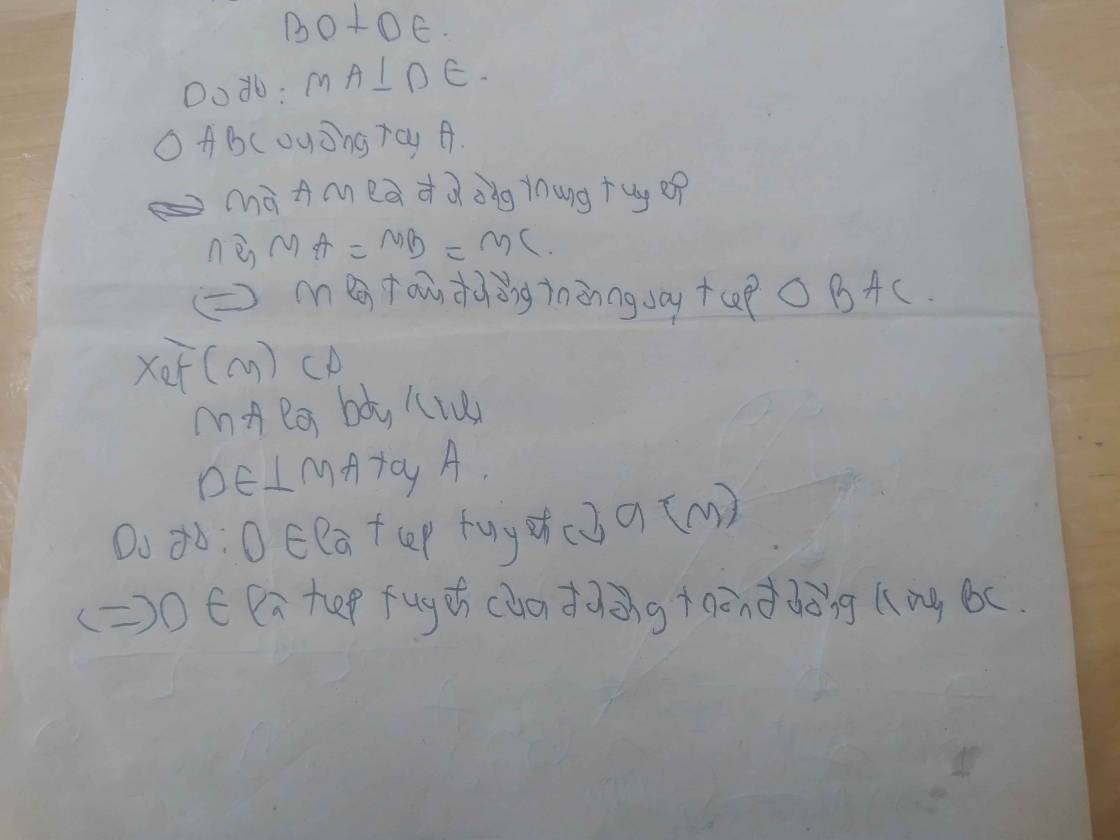 BD ⊥ DE.
Do đó: MA ⊥ DE.
Δ ABC vuông tại A.
mà AM là đường trung tuyến
nên MA = MB = MC.
(=) M là tâm đường tròn ngoại tiếp Δ BAC.
Xét (M) có
MA là bán kính
DE ⊥ MA tại A.
Do đó: DE là tiếp tuyến của (M)
(=) DE là tiếp tuyến của đường tròn đường kính BC.